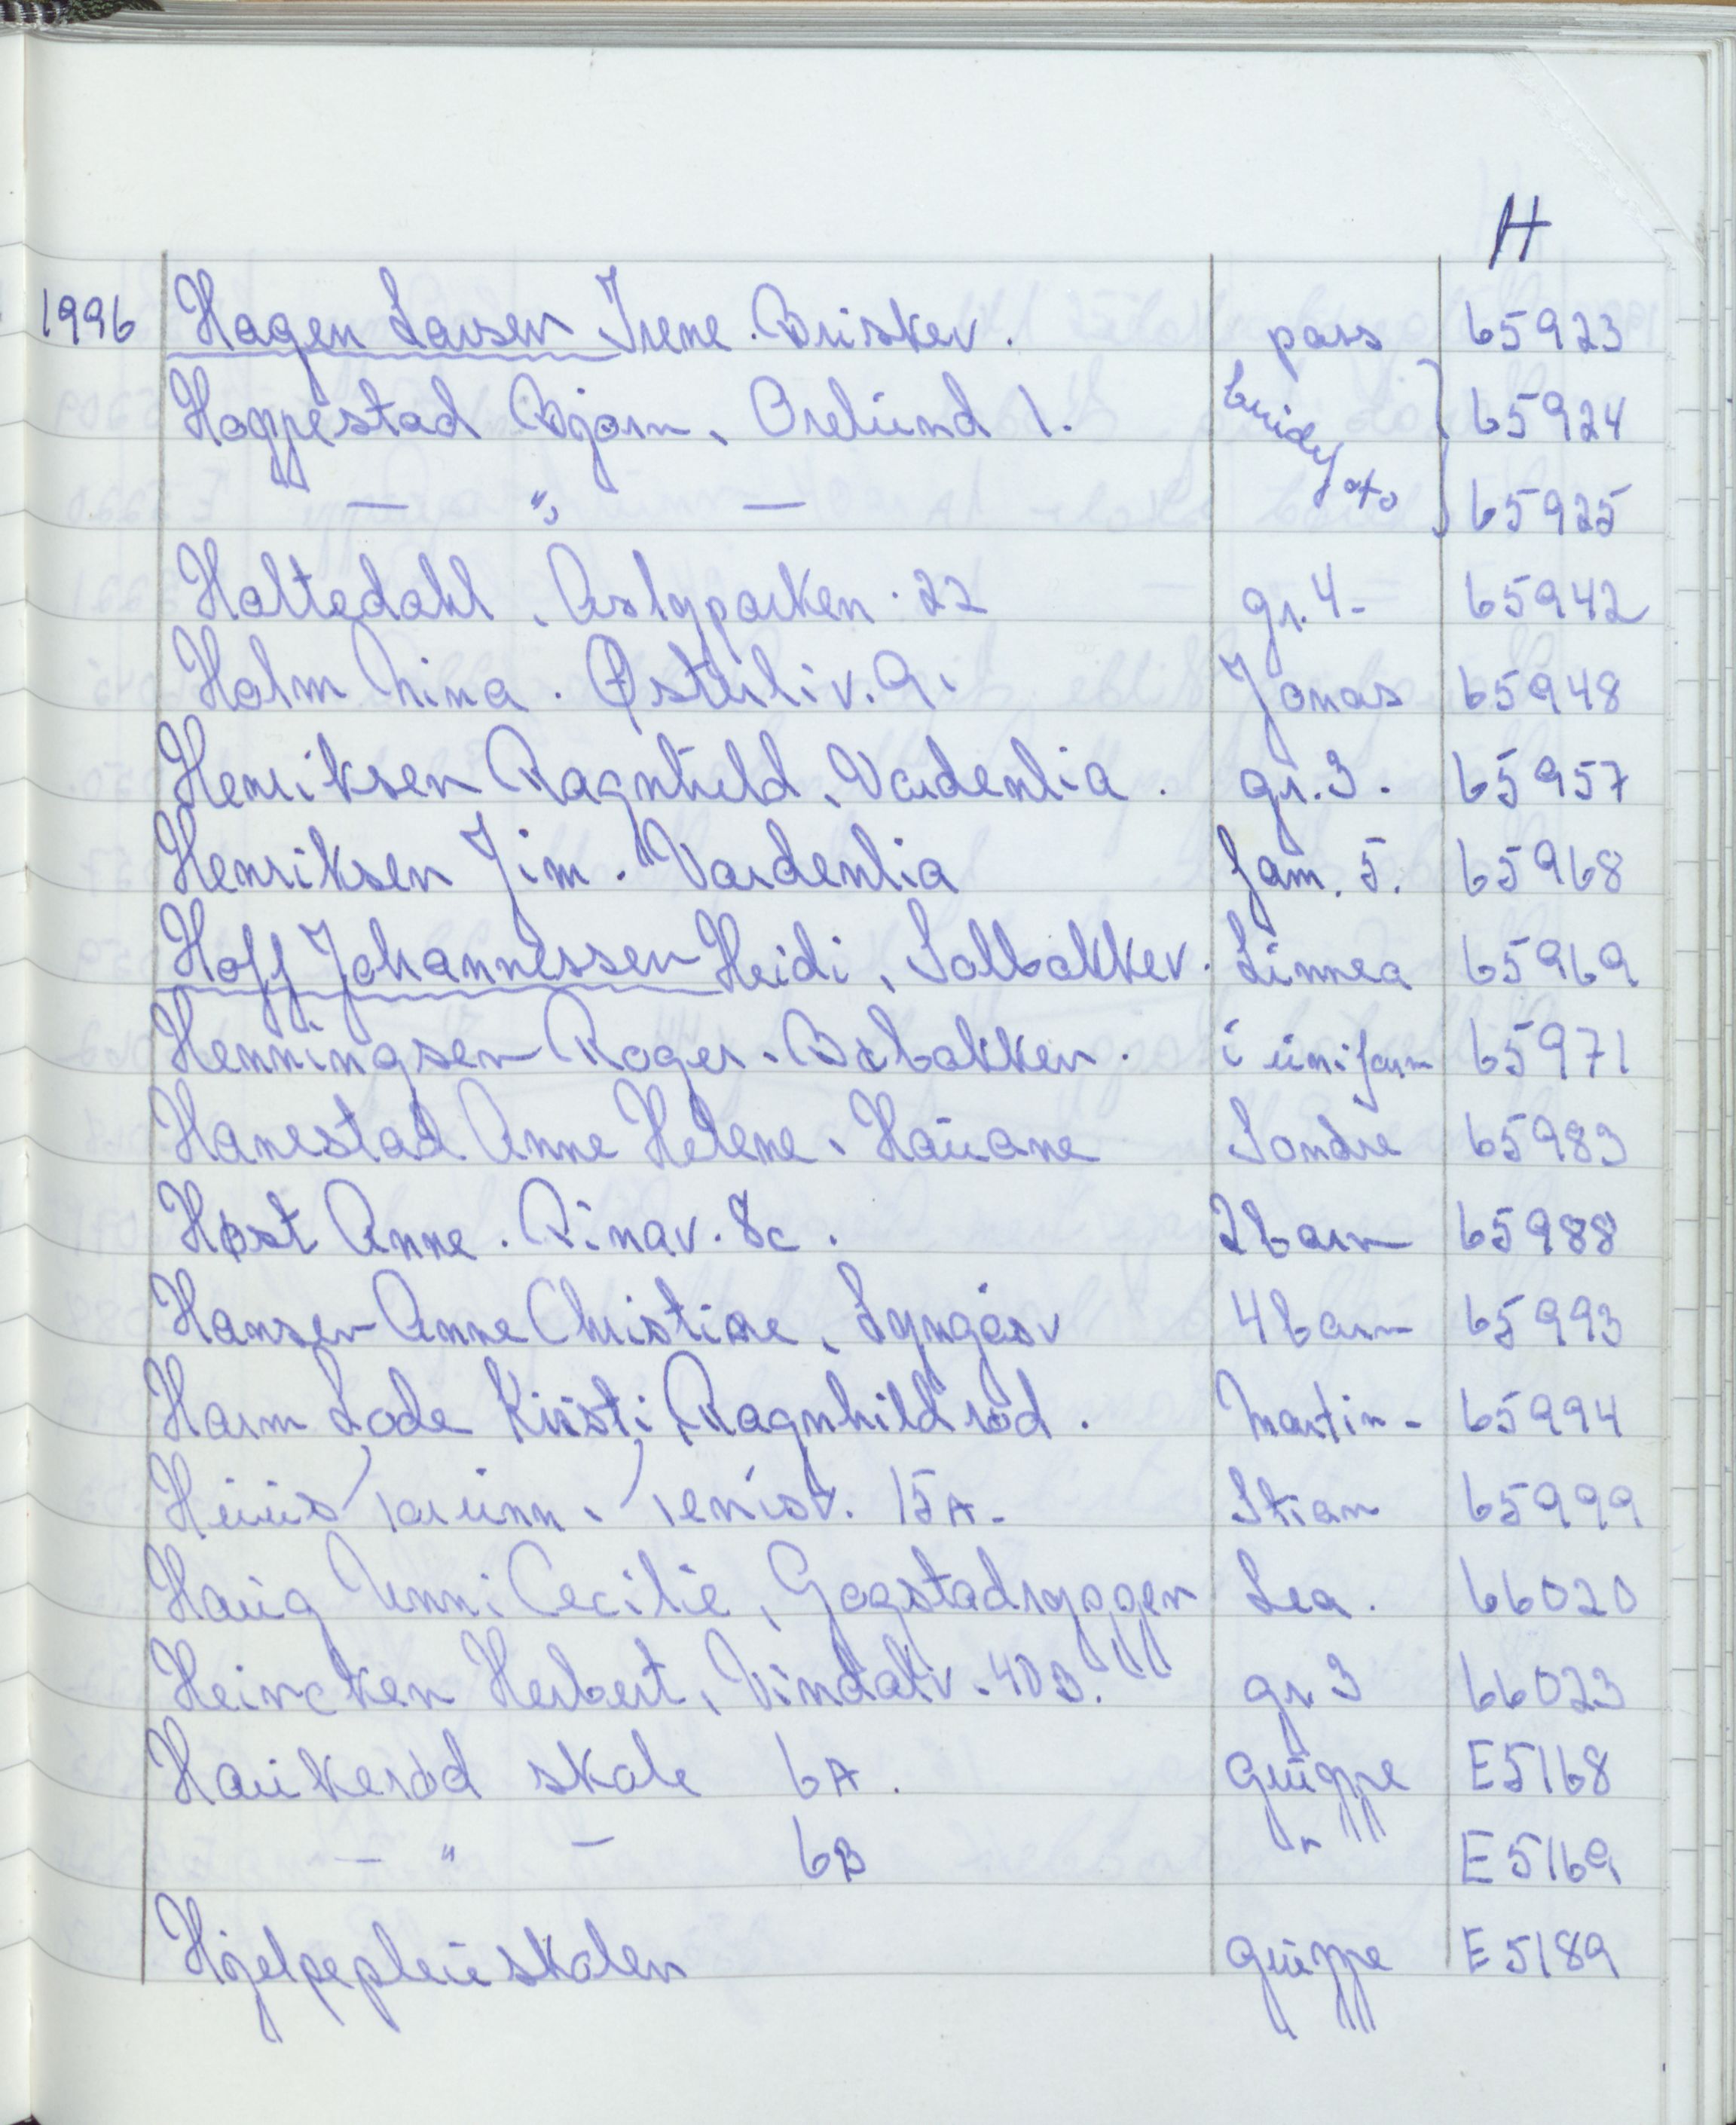 H
1996 Hagen Larsen Irene. Briskev. pass 65923
Hoppestad Bjørn, Orelund 1. brudef oto 65924
— " — 65925
Holtedahl, Aslyparken. 22 gr. 4- 65942
Holm Nina. Østerliv. 9. Jonas 65948
Henriksen Ragnhild, Vardenlia. gr. 3. 65957
Henriksen Jim. Vardenlia fam. 5. 65968
Hoff Johannessen Heidi, Solbakkev. Linnea 65969
Henningsen Roger. Bebakken. i uniform 65971
Hanestad Anne Helene, Hauane Sondre 65983
Høst Anne. Rinav. 8c. 2 barn 65988
Hansen Anne Christine, Lyngåsv 4 barn 65993
Harm Lode Kirsti, Ragnhildrød. Martin- 65994
15A- Stian 65999
Haug Unni Cecilie, Gogstadryggen Lea. 66020
Heincken Herbert, Vindalv. 40B. gr 3 66023
Haukerød skole 6A. gruppe E5168
— " — 6B " E5169
Hjelpepleieskolen gruppe E5189